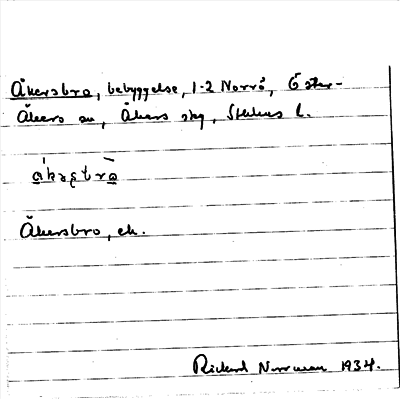 Åkersbro, bebyggelse, 1-2 Norrö, Öster-
Åkers sn, Åkers skg, Sthlms l.
Åkersbro, ek.
Rickard Norrman 1934.